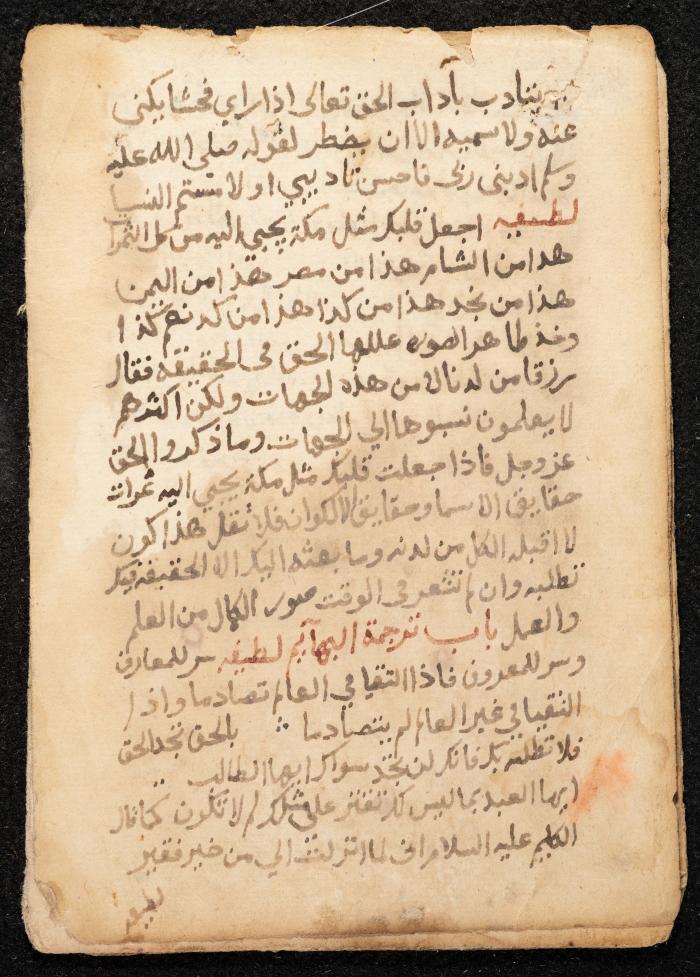 يتادب بآداب الحق تعالى اذا راي فحشا يكنى
عنه ولا يسميه الا ان يضطر لقوله صلى الله عليه
وسلم ادبنى ربى فاحسن تاديبي او لامستم النسا
لطيفه اجعل قلبك مثل مكة يجبي اليه من كل الثمرات
هدا من الشام هذا من مصر هذا من اليمن
هذا من نجد هذا من كذا هذا من كد نعم كذا
وخذ ظاهر الصوره عللها الحق فى الحقيقه فقال
رزقا من لدنا لا من هذه الجهات ولكن اكثرهم
لا يعلمون نسبوها الي الجهات وما ذكروا الحق
عز وجل فاذا جعلت قلبك مثل مكة يجبي اليه ثمرات
حقايق الاسما وحقايق الاكوان فلا تقل هذا كون
لا اقبله الكل من لدنه وما بعثه اليك الا لحقيقه فيك
تطلبه وان لم تشعر فى الوقت صور الكمال من العلم
والعمل باب ترجمة البهآيم لطيفه سر للمعارف
وسر للمعروف فاذا التقيا في العالم تصادما واذا
التقيا في غير العالم لم يتصادما بالحق تجد الحق
فلا تطلبه بك فانك لن تجد سواك ايها الطالب
ايها العبد بما ليس لك تفتخر على مثلك لم لا تكون كما قال
الكليم عليه السلام انى لما انزلت الي من خير فقير
لطيفه